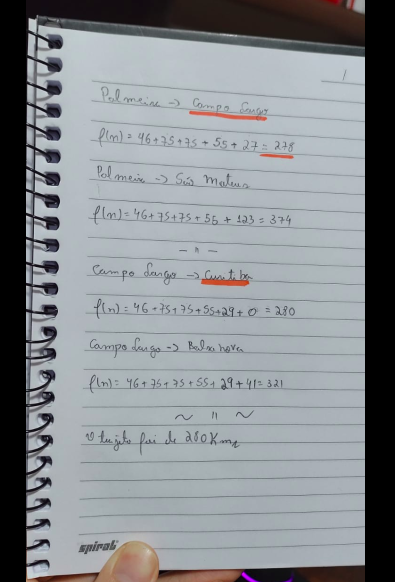 1
Palmeira -> Campo Largo
f(n) = 46+75+75+55+27 = 278
Palmeira -> São Mateus
f(n) = 46+75+75+55+123 = 374
— 11 —
Campo Largo -> Curitiba
f(n) = 46+75+75+55+29+0 = 280
Campo Largo -> Balsa nova
f(n) = 46+75+75+55+29+41 = 321
~ 11 ~
O trajeto foi de 280 Kms
spiral